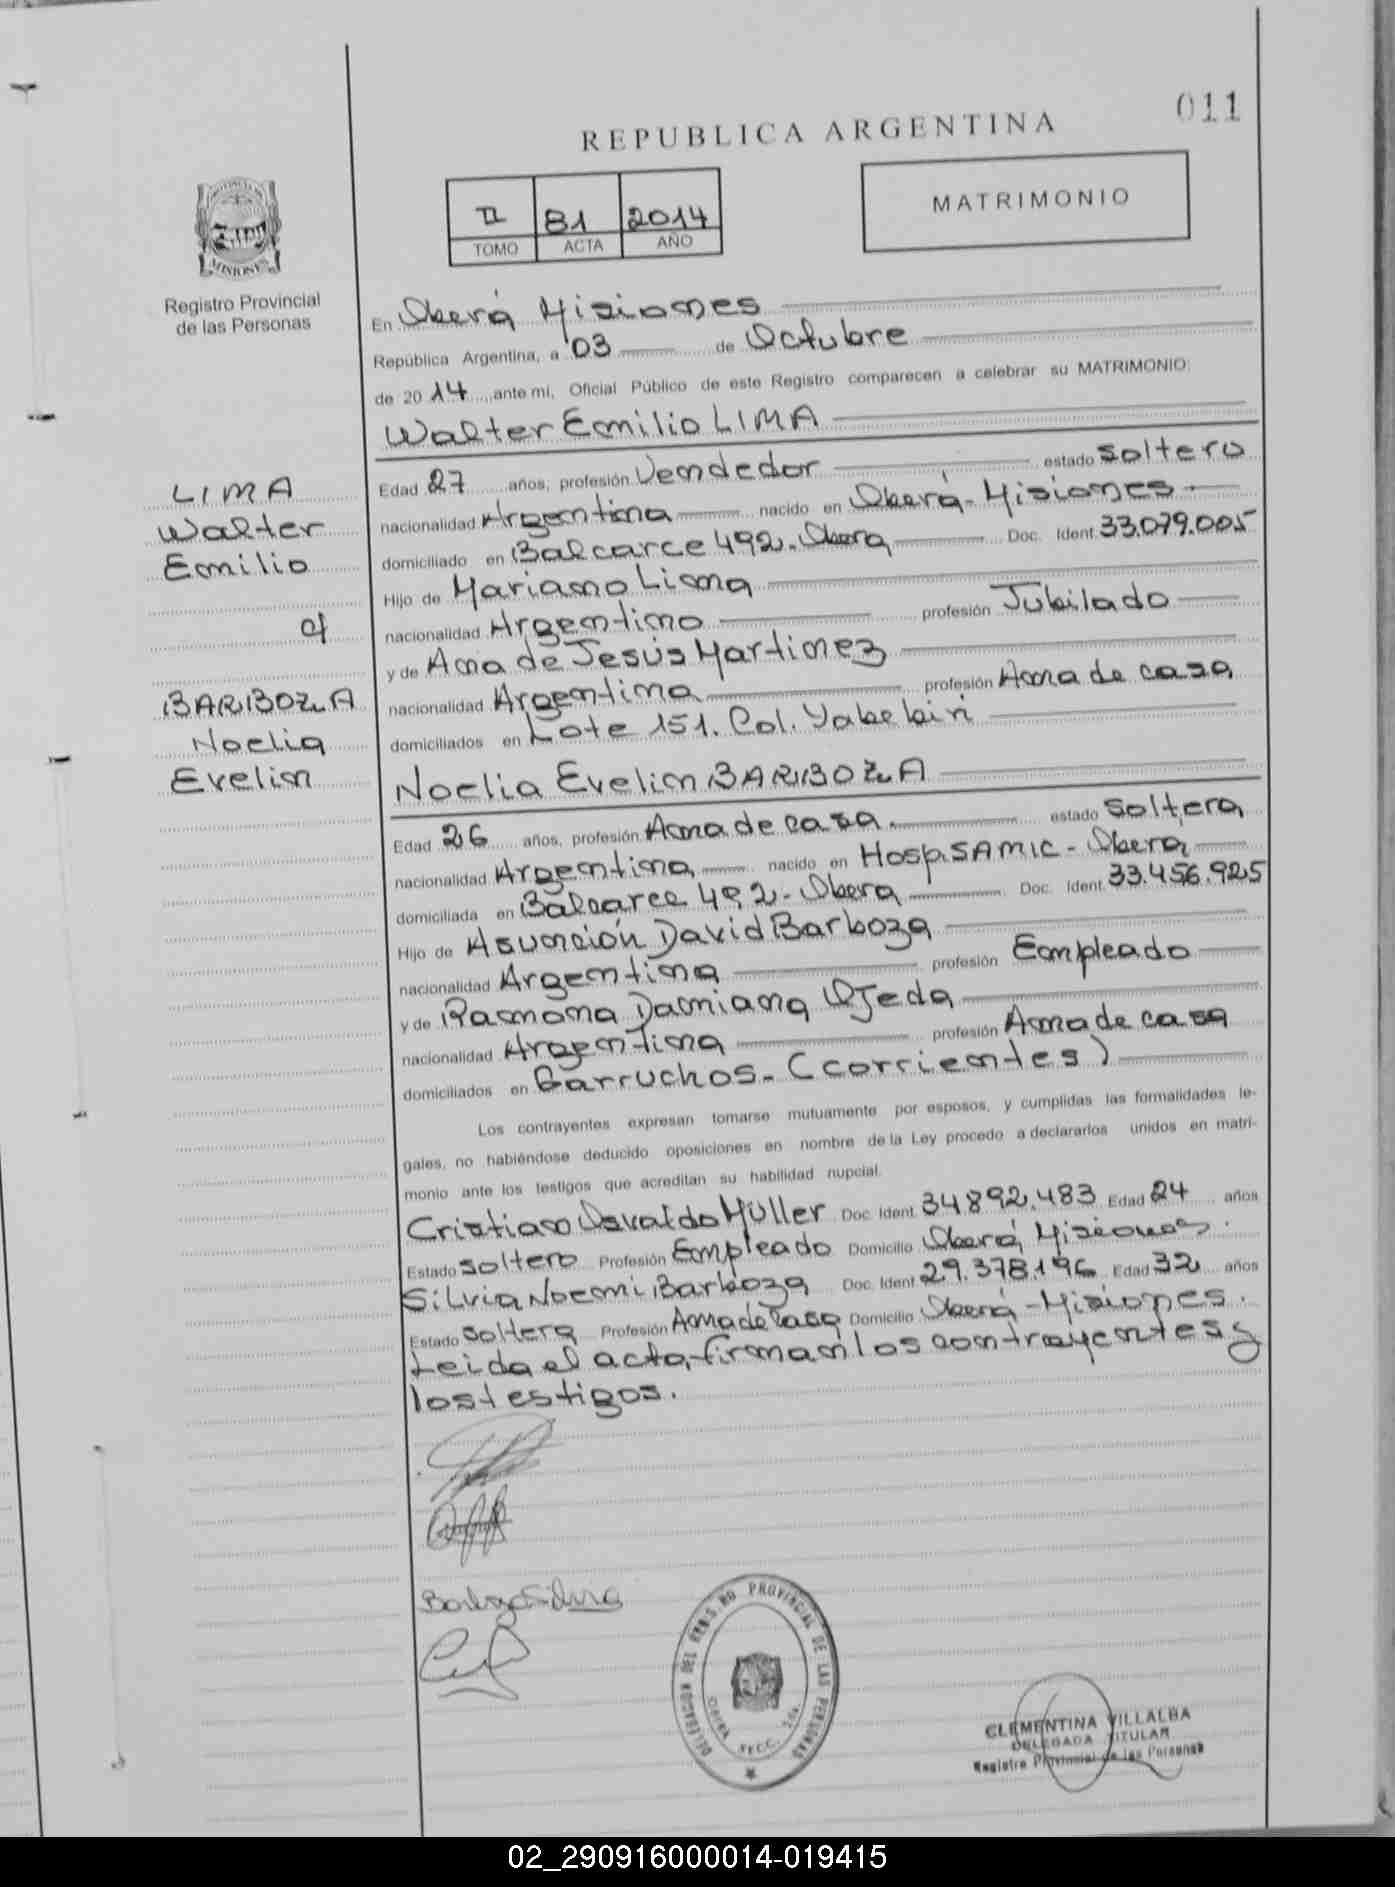 011
REPUBLICA ARGENTINA
II 81 2014
TOMO ACTA AÑO
MATRIMONIO
PROVINCIA DE
MISIONES
Registro Provincial
de las Personas
En Oberá Misiones
República Argentina, a 03 de Octubre
de 2014, ante mi, Oficial Público de este Registro comparecen a celebrar su MATRIMONIO:
Walter Emilio LIMA
Edad 27 años, profesión Vendedor estado soltero
nacionalidad Argentina nacido en Oberá-Misiones.
domiciliado en Balcarce 492. Obera Doc. Ident. 33.079.005
Hijo de Mariano Lima
nacionalidad Argentino profesión Jubilado
y de Ana de Jesús Martinez
nacionalidad Argentina profesión Ama de casa
domiciliados en Lote 151. Col. Yabebiri
LIMA
Walter
Emilio
c/
BARBOZA
Noelia
Evelin
Noelia Evelin BARBOZA
Edad 26 años, profesión Ama de casa. estado soltera
nacionalidad Argentina nacido en Hosp. SAMIC - Obera
domiciliada en Balcarce 492 - Obera Doc. Ident. 33.456.925
Hijo de Asunción David Barboza
nacionalidad Argentina profesión Empleado
y de Ramona Damiana Ojeda
nacionalidad Argentina profesión Ama de casa
domiciliados en Garruchos - (corrientes)
Los contrayentes expresan tomarse mutuamente por esposos, y cumplidas las formalidades le-
gales, no habiéndose deducido oposiciones en nombre de la Ley procedo a declararlos unidos en matri-
monio ante los testigos que acreditan su habilidad nupcial.
Cristian Osvaldo Müller Doc. Ident. 34.892.483 Edad 24 años
Estado soltero Profesión Empleado Domicilio Oberá Misiones.
Silvia Noemi Barboza Doc. Ident. 29.378.196 Edad 32 años
Estado soltera Profesión Ama de Casa Domicilio Oberá - Misiones.
Leida el acta, firman los contrayentes y
los testigos.
Barboza Silvia
DELEGACION DEL REGISTRO PROVINCIAL DE LAS PERSONAS
OBERA SECC.
CLEMENTINA VILLALBA
DELEGADA TITULAR
Registro Provincial de las Personas
02_290916000014-019415